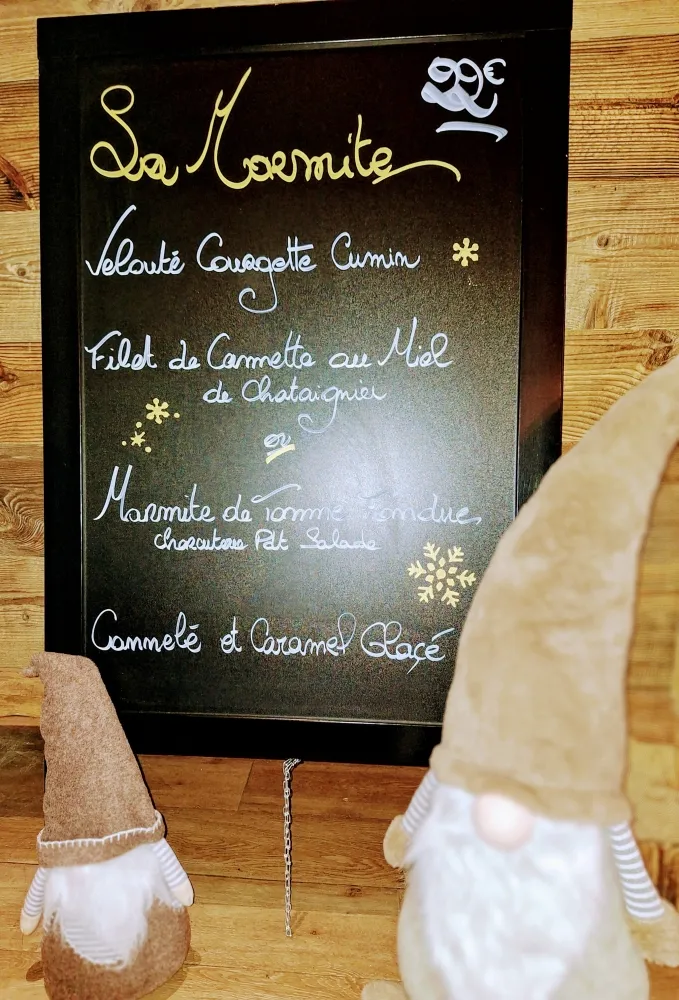 29€
La Marmite
Velouté Courgette Cumin
Filet de Cannette au Miel
de Chataignier
ou
Marmite de Tomme Fondue
charcuterie Pdt Salade
Cannelé et Caramel Glacé